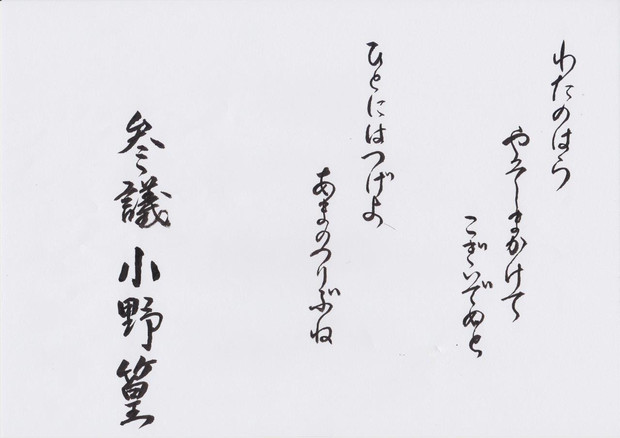 わたのはら
やそしまかけて
こぎいでぬと
ひとにはつげよ
あまのつりぶね
参議小野篁